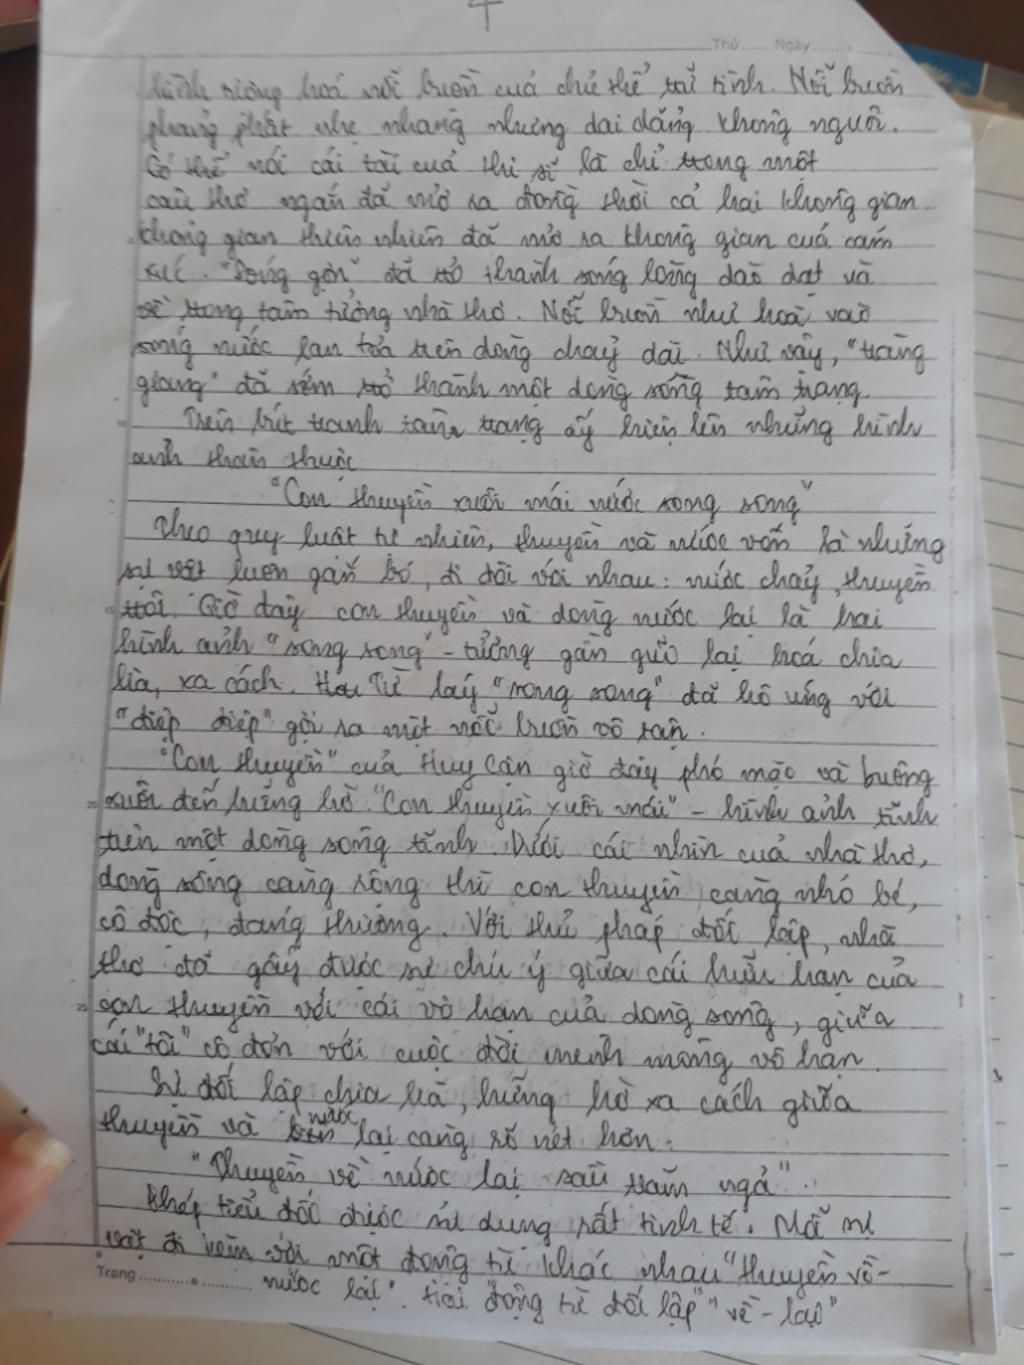 4
Thứ....... Ngày.......
hình tượng hoá nỗi buồn của chủ thể trữ tình. Nỗi buồn
phảng phất nhẹ nhàng nhưng dai dẳng không nguôi.
Có thể nói cái tài của thi sĩ là chỉ trong một
câu thơ ngắn đã mở ra đồng thời cả hai không gian.
không gian thiên nhiên đã mở ra không gian của cảm
xúc. "Sóng gợn" đã trở thành sóng lòng dào dạt và
về trong tâm tưởng nhà thơ. Nỗi buồn như hoà vào
sóng nước lan toả trên dòng chảy dài. Như vậy, "tràng
giang" đã sớm trở thành một dòng sông tâm trạng.
Trên bức tranh tâm trạng ấy hiện lên những hình
ảnh thân thuộc
"Con thuyền xuôi mái nước song song"
Theo quy luật tự nhiên, thuyền và nước vốn là những
sự vật luôn gắn bó, đi đôi với nhau: nước chảy, thuyền
trôi. Giờ đây con thuyền và dòng nước lại là hai
hình ảnh "song song" - tưởng gần gũi lại hoá chia
lìa, xa cách. Từ láy "song song" đã hô ứng với
"điệp điệp" gợi ra một nỗi buồn vô tận.
"Con thuyền" của Huy Cận giờ đây phó mặc và buông
xuôi đến hững hờ "Con thuyền xuôi mái" - hình ảnh tĩnh
trên một dòng sông tĩnh. Dưới cái nhìn của nhà thơ,
dòng sông càng rộng thì con thuyền càng nhỏ bé,
cô độc, đáng thương. Với thủ pháp đối lập, nhà
thơ đã gây được sự chú ý giữa cái hữu hạn của
con thuyền với cái vô hạn của dòng sông, giữa
cái "tôi" cô đơn với cuộc đời mênh mông vô hạn.
Sự đối lập chia lìa, hững hờ xa cách giữa
thuyền và nước lại càng rõ nét hơn:
"Thuyền về nước lại sầu trăm ngả".
Phép tiểu đối được sử dụng rất tinh tế. Mỗi sự
vật đi kèm với một động từ khác nhau "thuyền về -
Trang.................... nước lại". Hai "động từ đối lập" "về - lại"